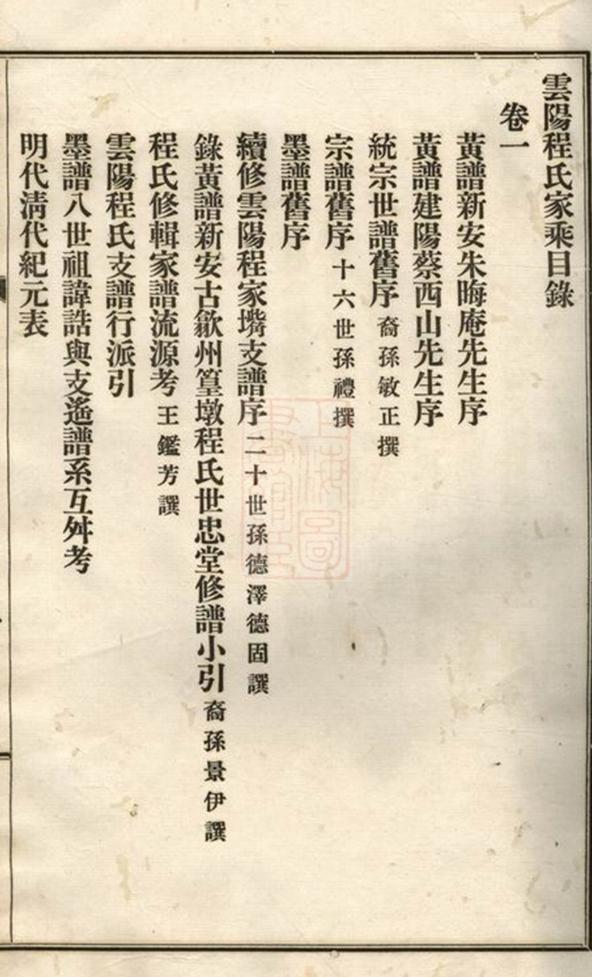 雲陽程氏家乘目錄
卷一
黃譜新安朱晦庵先生序
黃譜建陽蔡西山先生序
統宗世譜舊序 裔孫敏正撰
宗譜舊序 十六世孫禮撰
墨譜舊序
續修雲陽程家塆支譜序 二十世孫德澤德固譔
錄黃譜新安古歙州篁墩程氏世忠堂修譜小引 裔孫景伊譔
程氏修輯家譜流源考 王鑑芳譔
雲陽程氏支譜行派引
墨譜八世祖諱誥與支遙譜系互舛考
明代淸代紀元表